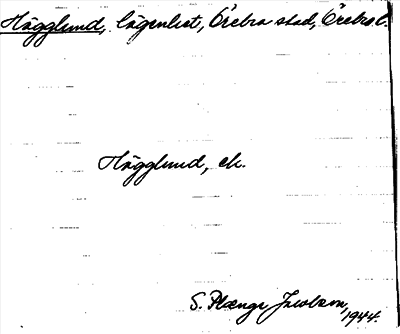 Hägglund, lägenhet, Örebro stad, Örebro l.
Hägglund, ek.
S. Plænge Jacobson, 1944.